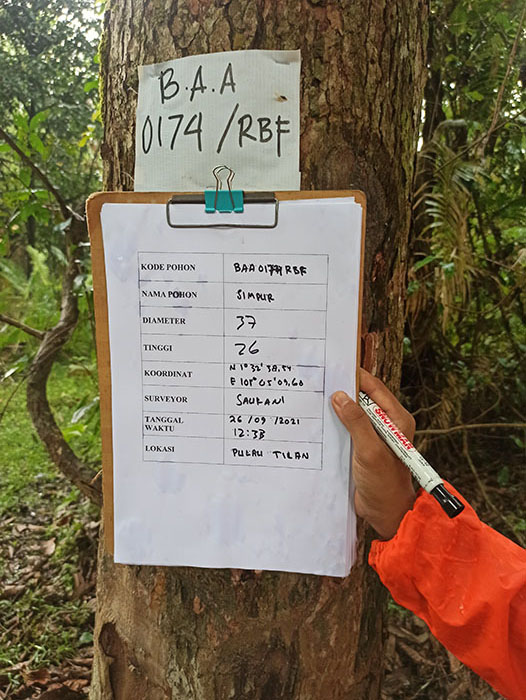 B.A.A
0174/RBF
KODE POHON BAA 0174 RBF
NAMA POHON SIMPUR
DIAMETER 37
TINGGI 26
KOORDINAT N 1° 32' 38.54
E 101° 05' 09.60
SURVEYOR SAURANI
TANGGAL 26 / 09 / 2021
WAKTU 12:33
LOKASI PULAU TILAN
SNOWMAN